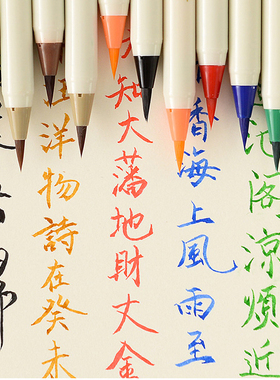 池閣涼煩近
香海上風雨至
知大藩地財丈金
洋物詩在癸未